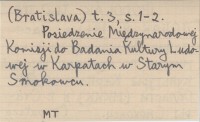 (Bratislava) t. 3, s. 1-2.
Posiedzenie Międzynarodowej
Komisji do Badania Kultury Ludo-
wej w Karpatach w Starym
Smokowcu.
MT